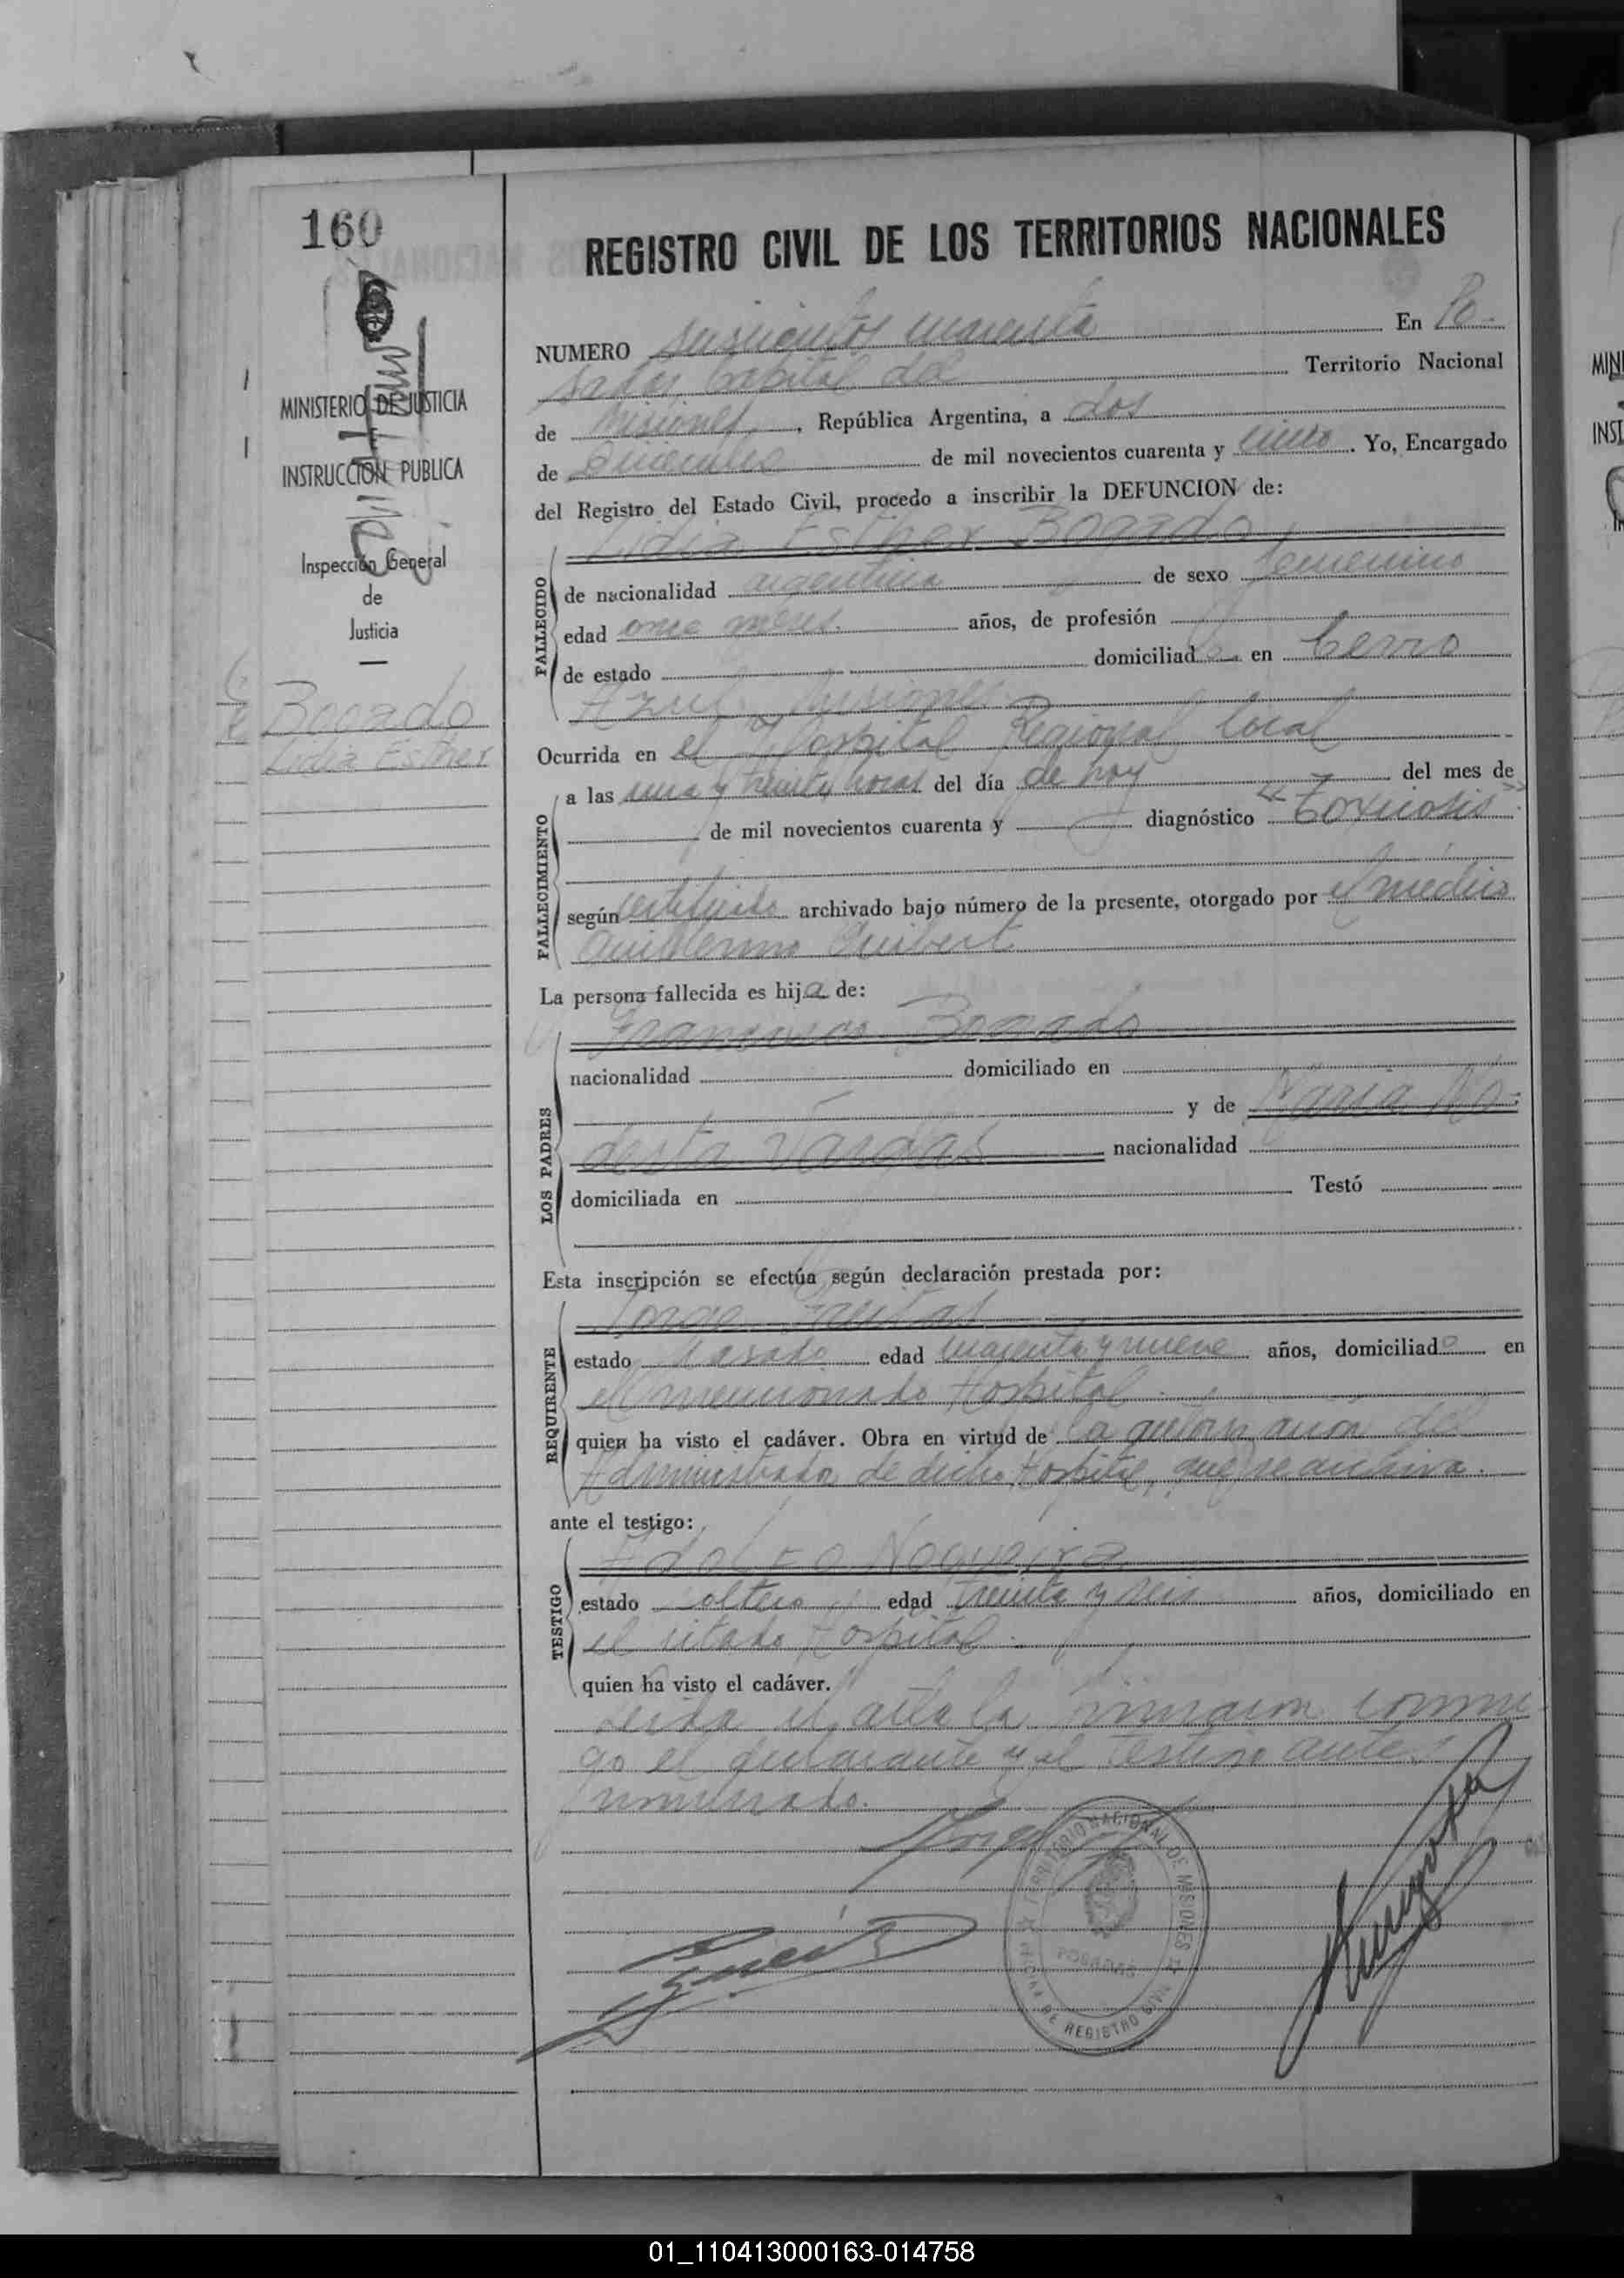 160
REGISTRO CIVIL DE LOS TERRITORIOS NACIONALES
MINISTERIO DE JUSTICIA
INSTRUCCION PUBLICA
Inspección General
de
Justicia
Bogado
Lidia Esther
NUMERO seiscientos cuarenta En Po-
sadas, Capital del Territorio Nacional
de Misiones, República Argentina, a dos
de Diciembre de mil novecientos cuarenta y cinco. Yo, Encargado
del Registro del Estado Civil, procedo a inscribir la DEFUNCION de:
FALLECIDO
Lidia Esther Bogado
de nacionalidad argentina de sexo femenino
edad once meses. años, de profesión
de estado domiciliada en Cerro
Azul, Misiones.
Ocurrida en el Hospital Regional local
FALLECIMIENTO
a las una y treinta horas del día de hoy del mes de
de mil novecientos cuarenta y diagnóstico "Toxicosis".
según certificado archivado bajo número de la presente, otorgado por el médico
Guillermo
La persona fallecida es hija de:
LOS PADRES
Francisco Bogado
nacionalidad domiciliado en
y de María Mo-
desta Vargas nacionalidad
domiciliada en Testó
Esta inscripción se efectúa según declaración prestada por:
REQUIRENTE
Jorge Freitas
estado casado edad cuarenta y nueve años, domiciliado en
el mencionado Hospital.
quien ha visto el cadáver. Obra en virtud de la autorización del
Administrador de dicho Hospital, que se archiva.
ante el testigo:
TESTIGO
Adolfo Nogueira
estado soltero edad treinta y seis años, domiciliado en
el citado Hospital.
quien ha visto el cadáver.
Leída el acta la firmaron conmi-
go el declarante y el testigo antes
nombrado.
TERRITORIO NACIONAL DE MISIONES
OFICINA DE REGISTRO CIVIL
POSADAS
01_110413000163-014758